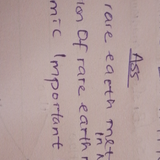 Ass
rare earth met
in
ion of rare earth
mic important